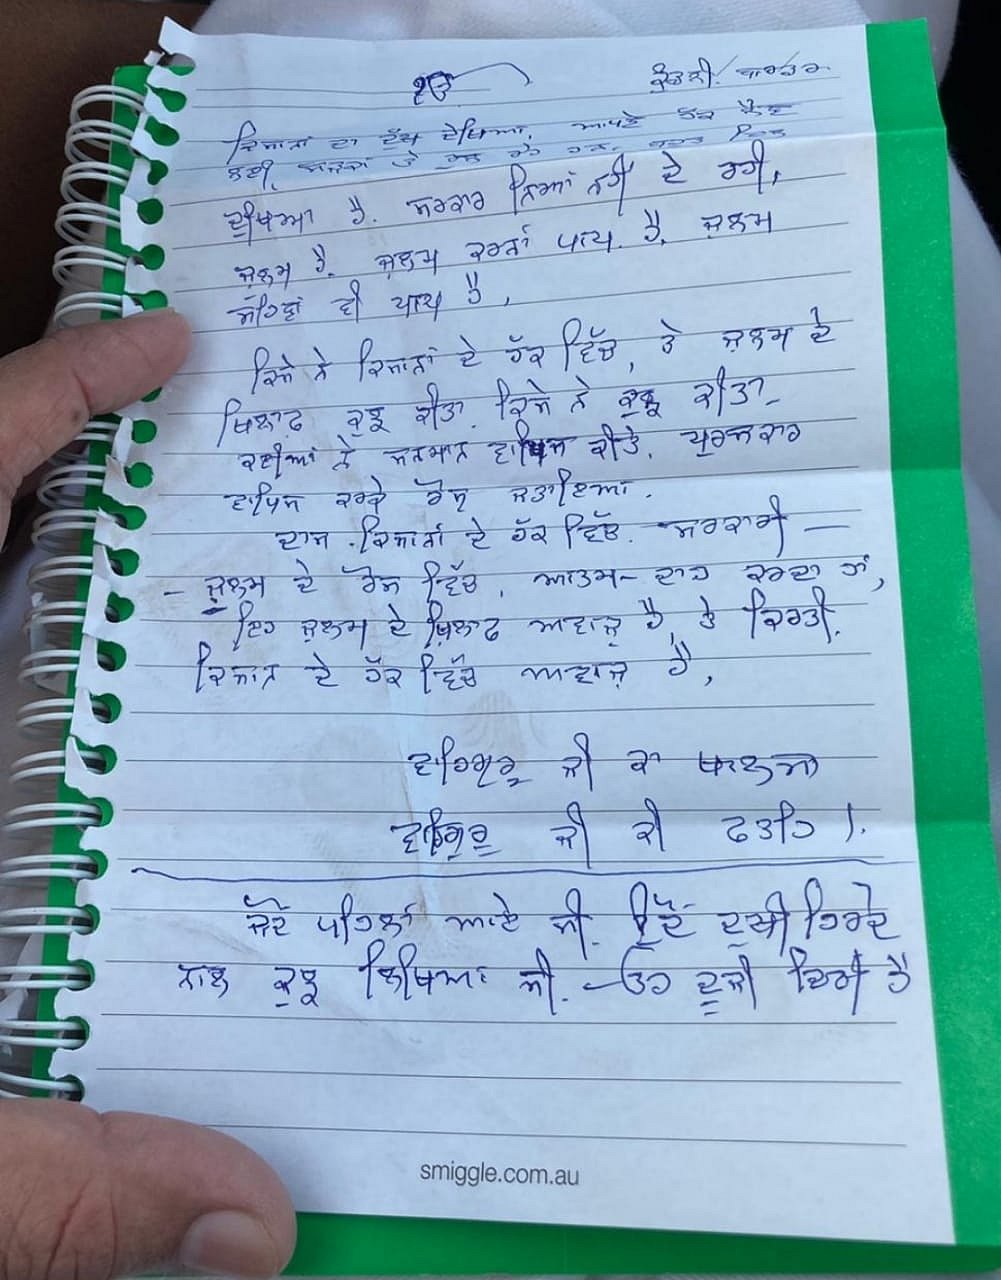 ੴ ਕੁੰਡਲੀ. ਬਾਰਡਰ
ਕਿਸਾਨਾਂ ਦਾ ਦੁੱਖ ਦੇਖਿਆ. ਆਪਣੇ ਹੱਕ ਲੈਣ
ਲਈ, ਸੜਕਾਂ ਤੇ ਰੁਲ ਰਹੇ ਹਨ. ਬਹੁਤ ਦਿਲ
ਦੁਖਿਆ ਹੈ. ਸਰਕਾਰ ਨਿਆਂ ਨਹੀਂ ਦੇ ਰਹੀ,
ਜ਼ੁਲਮ ਹੈ. ਜ਼ੁਲਮ ਕਰਨਾਂ ਪਾਪ ਹੈ. ਜ਼ੁਲਮ
ਸਹਿਣਾਂ ਵੀ ਪਾਪ ਹੈ,
ਕਿਸੇ ਨੇ ਕਿਸਾਨਾਂ ਦੇ ਹੱਕ ਵਿੱਚ, ਤੇ ਜ਼ੁਲਮ ਦੇ
ਖਿਲਾਫ ਕੁਝ ਕੀਤਾ. ਕਿਸੇ ਨੇ ਕੁਝ ਕੀਤਾ-
ਕਈਆਂ ਨੇ ਸਨਮਾਨ ਵਾਪਿਸ ਕੀਤੇ. ਪੁਰਸਕਾਰ
ਵਾਪਿਸ ਕਰਕੇ ਰੋਸ ਜਤਾਇਆ.
ਦਾਸ. ਕਿਸਾਨਾਂ ਦੇ ਹੱਕ ਵਿੱਚ. ਸਰਕਾਰੀ —
- ਜ਼ੁਲਮ ਦੇ ਰੋਸ ਵਿੱਚ, ਆਤਮ-ਦਾਹ ਕਰਦਾ ਹਾਂ,
ਇਹ ਜ਼ੁਲਮ ਦੇ ਖ਼ਿਲਾਫ ਅਵਾਜ਼ ਹੈ, ਤੇ ਕਿਰਤੀ.
ਕਿਸਾਨ ਦੇ ਹੱਕ ਵਿੱਚ ਅਵਾਜ਼ ਹੈ,
ਵਾਹਿਗੁਰੂ ਜੀ ਕਾ ਖਾਲਸਾ
ਵਾਹਿਗੁਰੂ ਜੀ ਕੀ ਫਤਹਿ ।.
ਜਦੋਂ ਪਹਿਲਾਂ ਆਏ ਸੀ. ਉਦੋਂ ਦੁਖੀ ਹਿਰਦੇ
ਨਾਲ ਕੁਝ ਲਿਖਿਆ ਸੀ. - ਉਹ ਦੂਜੀ ਚਿਠੀ ਹੈ
smiggle.com.au